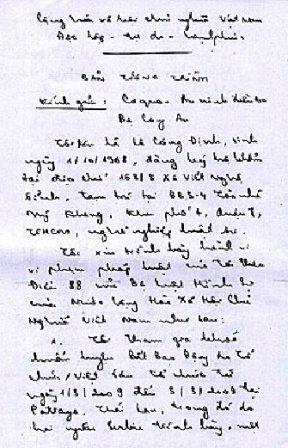 Cộng hòa xã hội chủ nghĩa Việt Nam
Độc lập - tự do - hạnh phúc
BẢN TƯỜNG TRÌNH
Kính gửi: Cơ quan An ninh Điều tra
Bộ Công An
Tôi tên là Lê Công Định, sinh
ngày 1/10/1968, đăng ký hộ khẩu
tại địa chỉ 168/8 Xô Viết Nghệ
Tĩnh, tạm trú tại
Mỹ Khang, khu phố 4, quận 7,
TPHCM, nghề nghiệp luật sư.
Tôi xin trình bày hành vi
vi phạm pháp luật của tôi theo
Điều 88 của Bộ luật Hình sự
của Nước Cộng Hòa Xã Hội Chủ
Nghĩa Việt Nam như sau:
1. Tôi tham gia khóa
huấn luyện Bất Bạo Động do tổ
chức Việt Tân tổ chức từ
ngày 1/3/2009 đến 3/3/2009 tại
Pattaya, Thái Lan, trong đó có
hai người Serbia trình bày, một